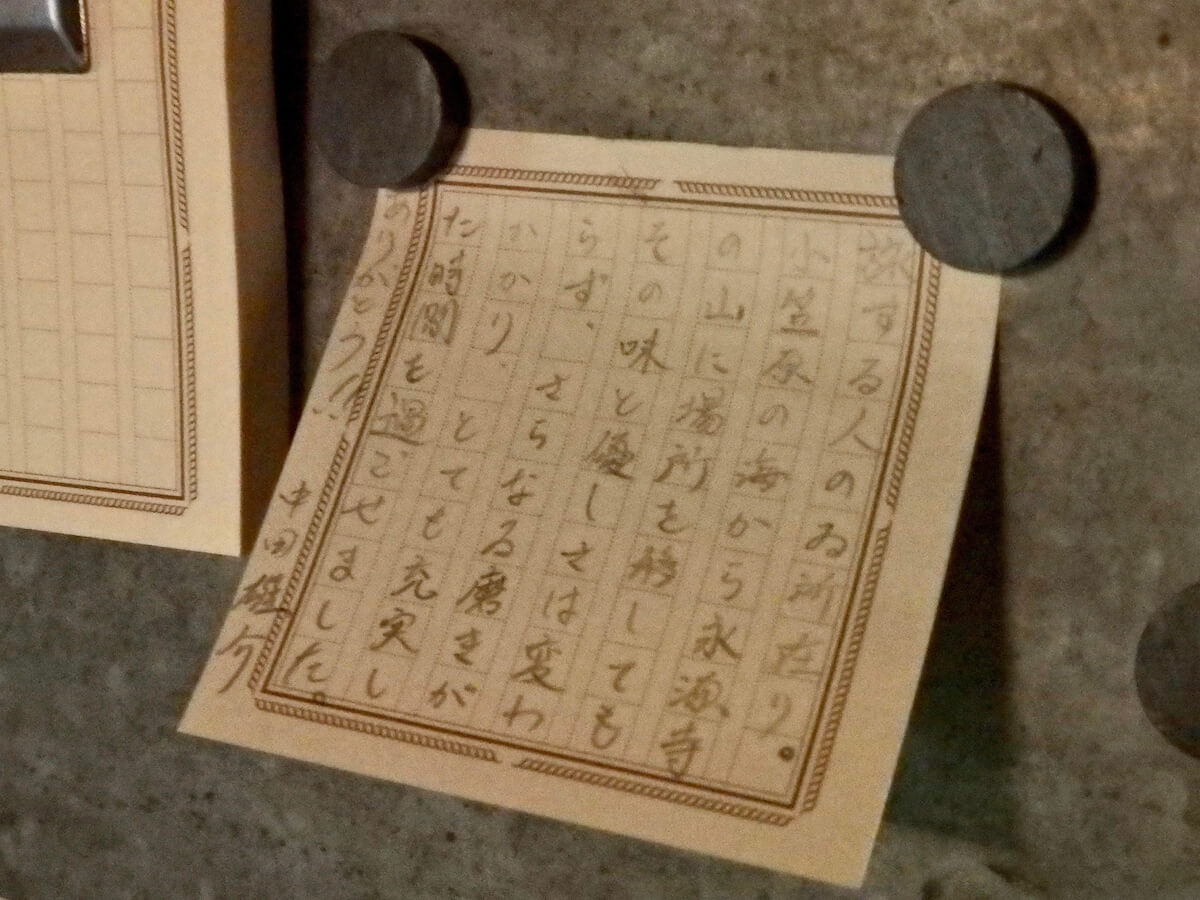 旅する人のゐ所在り。
小笠原の海から永源寺
の山に場所を移しても
その味と優しさは変わ
らず、さらなる磨きが
かかり、とても充実し
た時間を過ごせました。
ありがとう!!
中田雄介